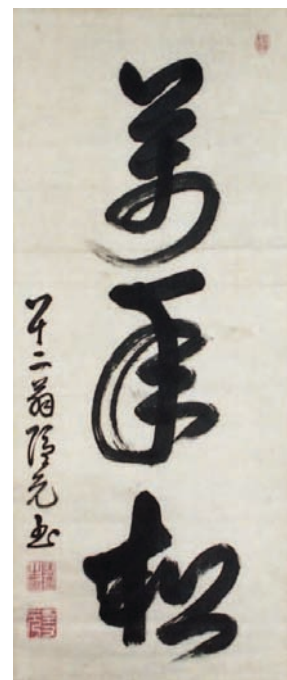 萬年松
八十二翁隱元書